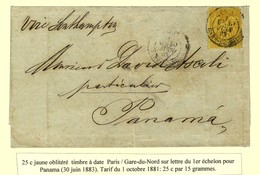 Voie Southampton
Monsieur David Ascoli
particulier
Panamá
25 c jaune oblitéré timbre à date Paris / Gare-du-Nord sur lettre du 1er échelon pour
Panama (30 juin 1883). Tarif du 1 octobre 1881: 25 c par 15 grammes.